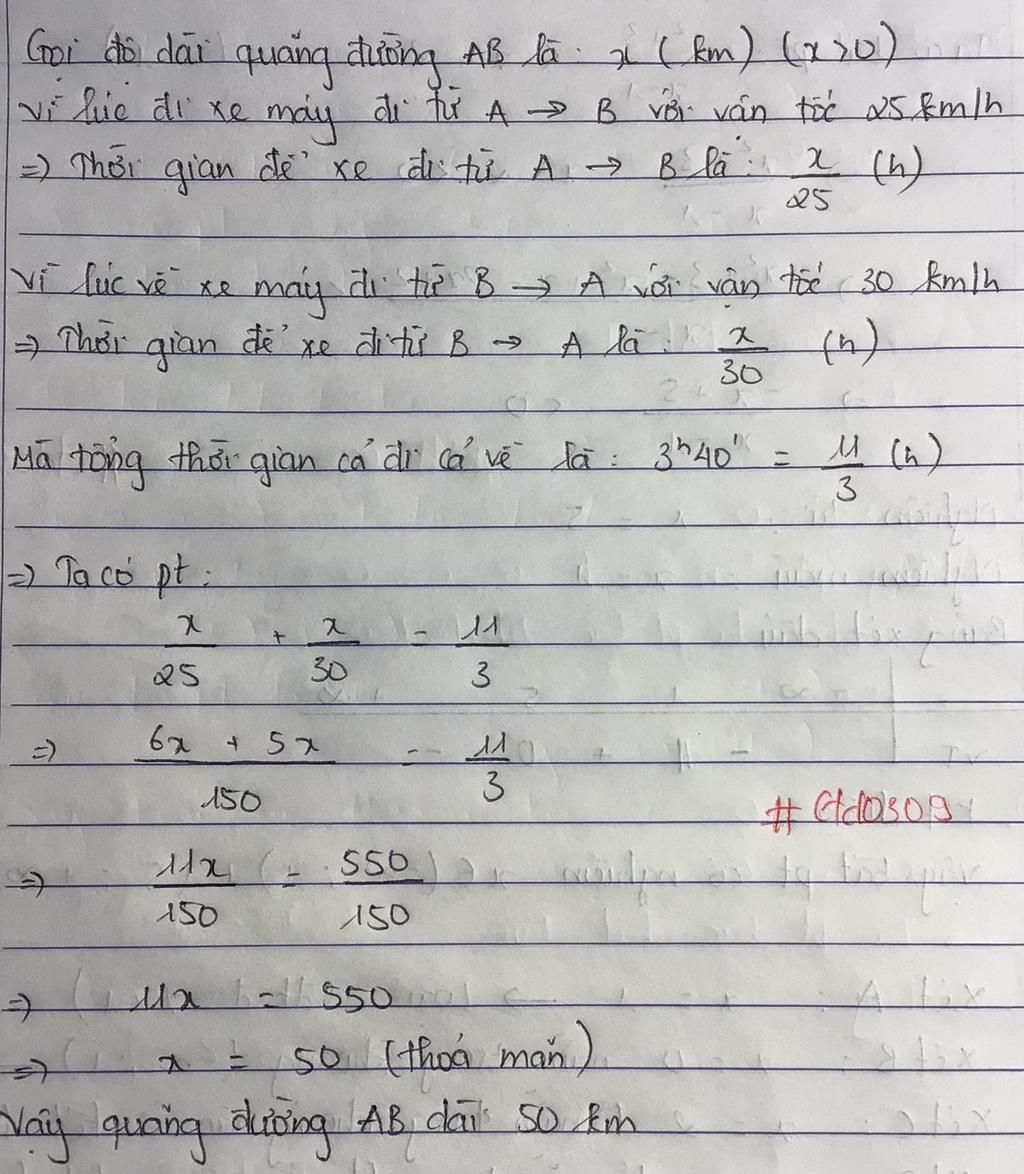 Gọi độ dài quãng đường AB là: x (km) (x>0)
Vì lúc đi xe máy đi từ A → B với vận tốc 25 km/h
=> Thời gian để xe đi từ A → B là: x/25 (h)
Vì lúc về xe máy đi từ B → A với vận tốc 30 km/h
=> Thời gian để xe đi từ B → A là: x/30 (h)
Mà tổng thời gian cả đi cả về là: 3h40' = 11/3 (h)
=> Ta có pt:
x/25 + x/30 = 11/3
=> (6x + 5x)/150 = 11/3
=> 11x/150 = 550/150
=> 11x = 550
=> x = 50 (thoả mãn)
Vậy quãng đường AB dài 50 km